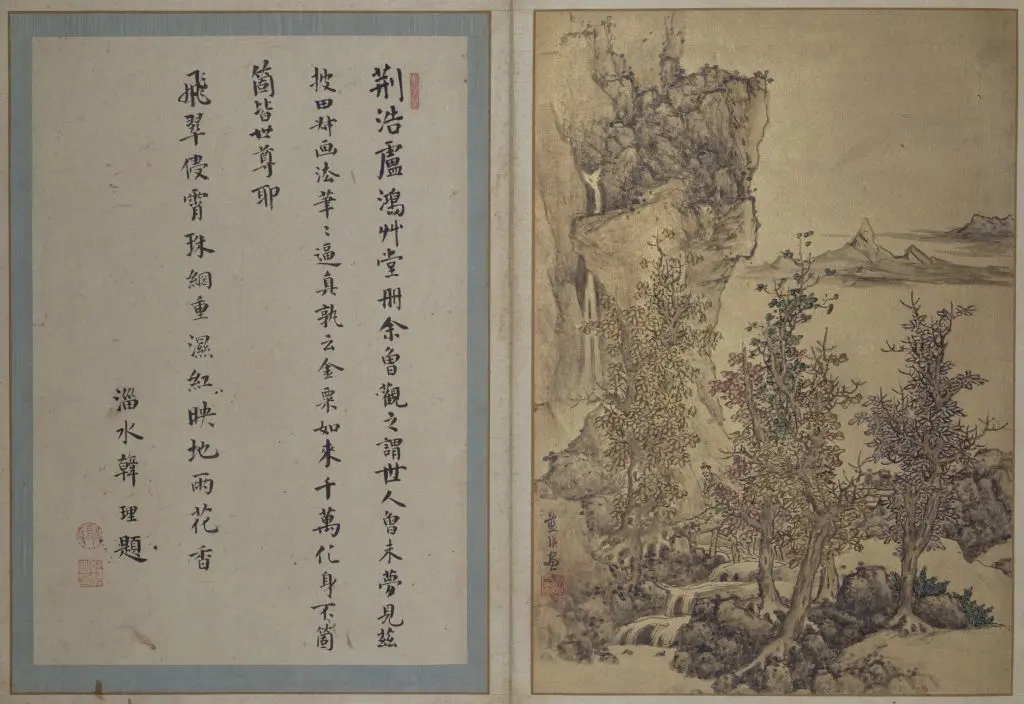 荆浩盧鴻艸堂冊余曾觀之謂世人曾未夢見茲
披田叔画法筆〻逼真孰云金粟如來千萬化身不箇
箇皆世尊耶
飛翠侵霄珠網重濕紅映地雨花香
淄水韓理題
藍瑛画